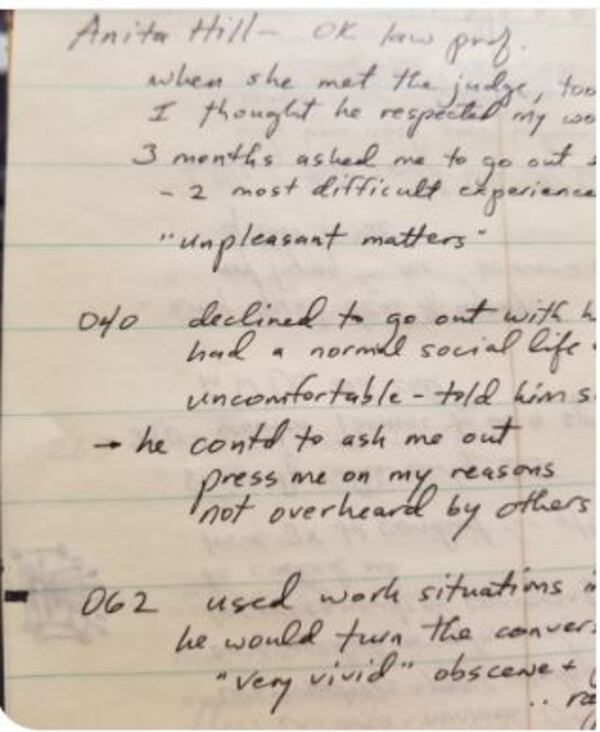 Anita Hill – OK law prof.
when she met the judge, too
I thought he respected my wo
3 months asked me to go out
- 2 most difficult experience
"unpleasant matters"
040 declined to go out with h
had a normal social life
uncomfortable – told him s
→ he contd to ask me out
press me on my reasons
not overheard by others
062 used work situations
he would turn the conver
"very vivid" obscene +